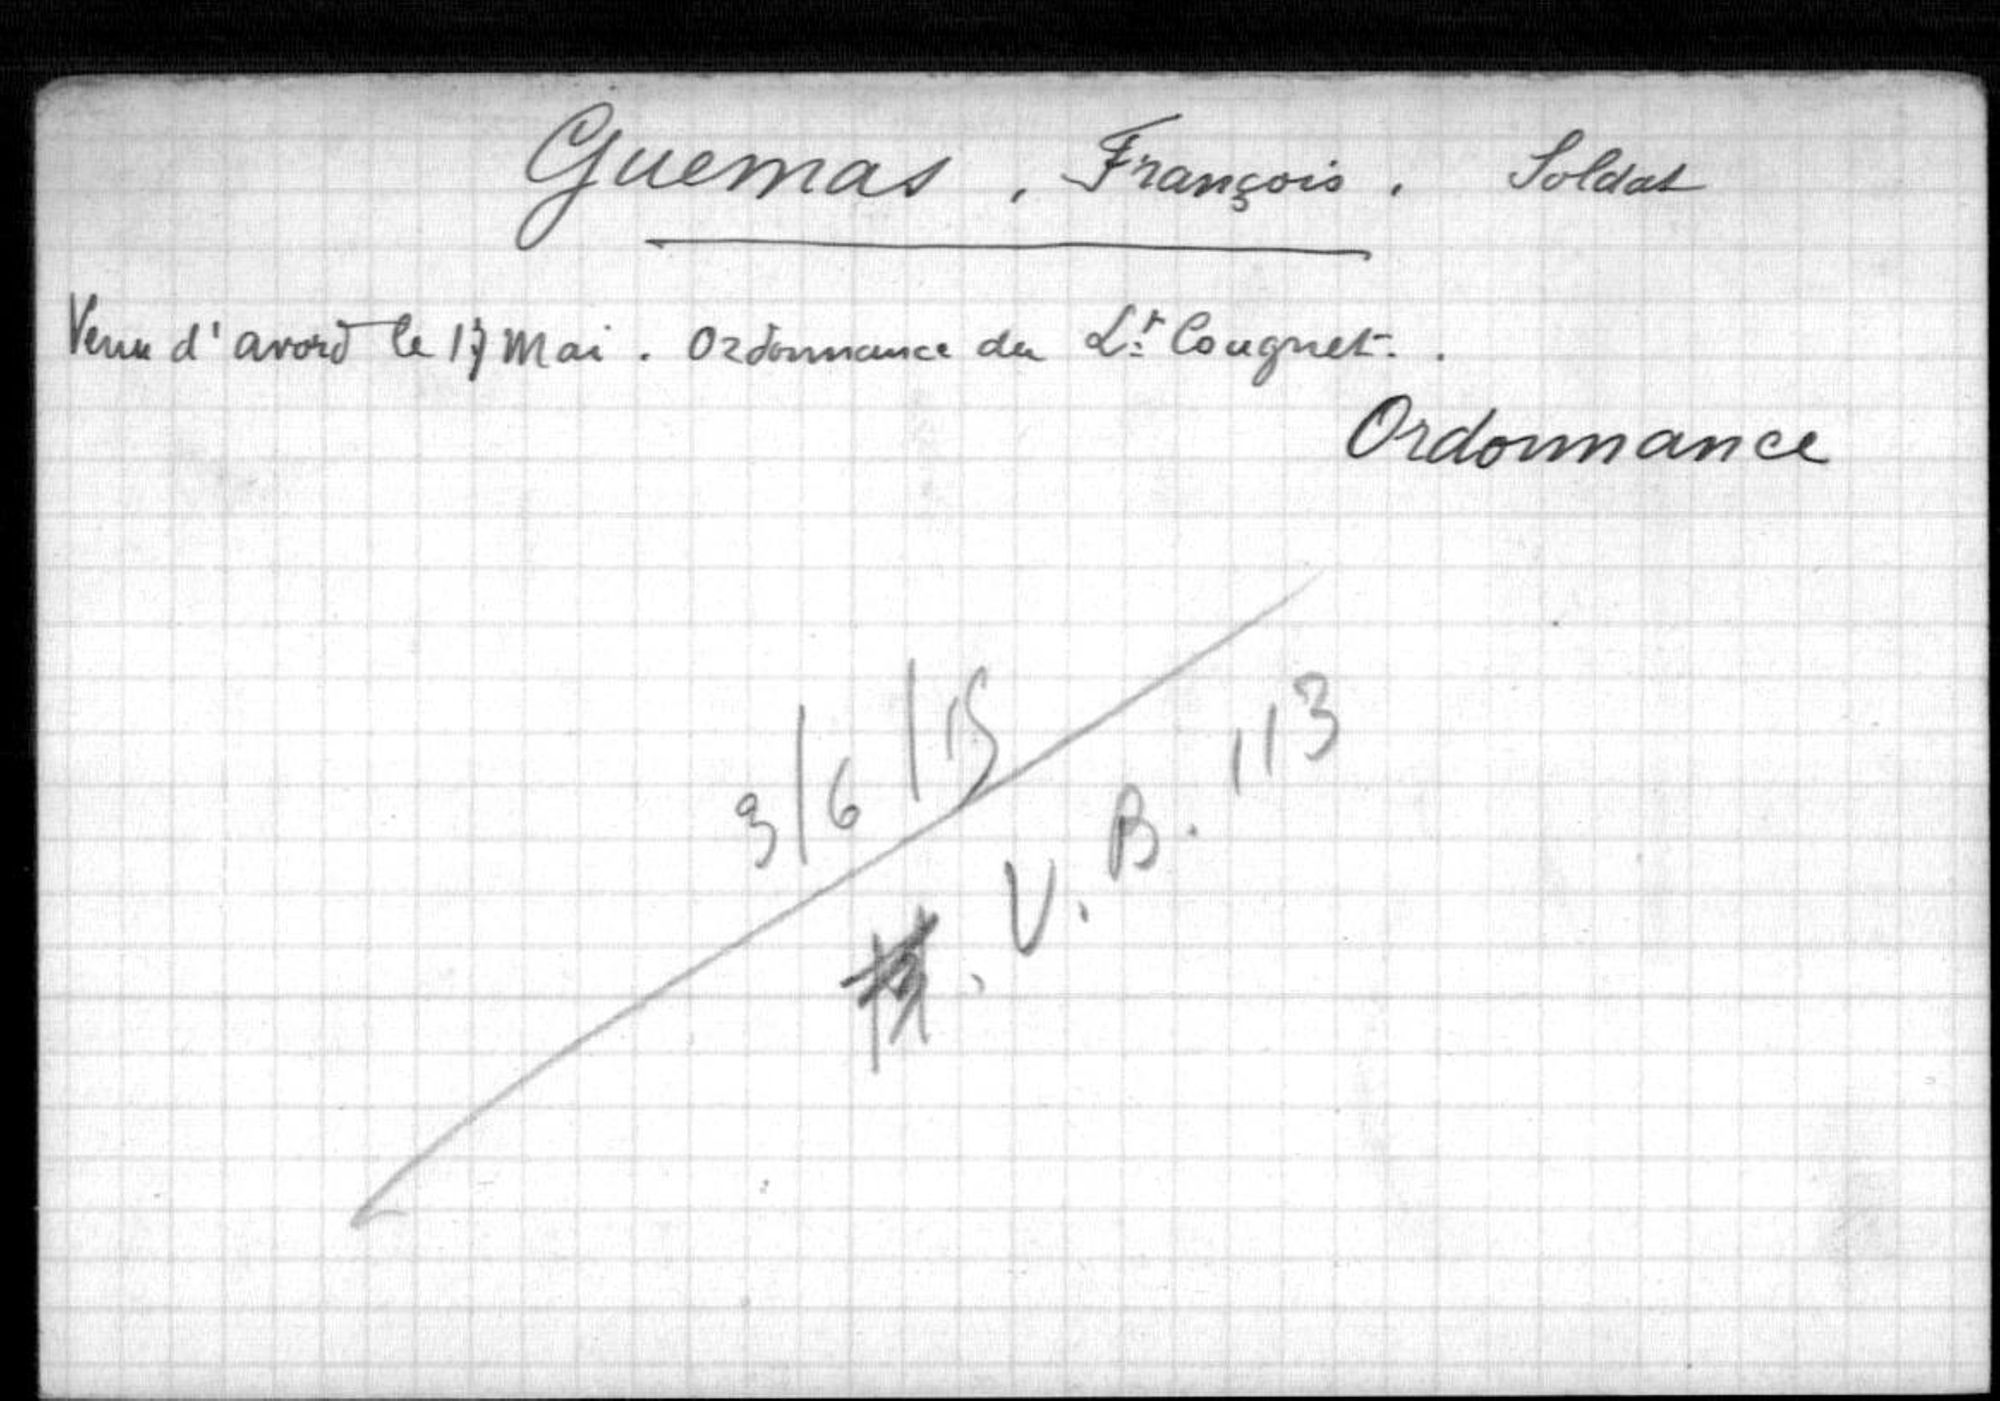 Guemas, François. Soldat
Venu d'avord le 17 Mai. Ordonnance du Lt Cougnet.
Ordonnance
3/6/15
V.B.113